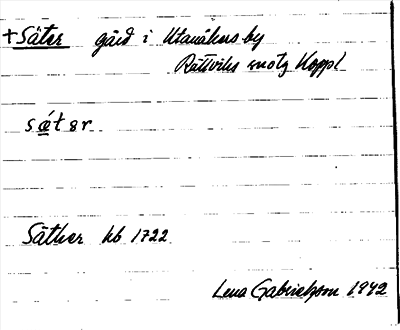 +Säter gård i Utanåkers by
Rättviks snötg Koppl
sǽtər
Säther kb 1722
Lena Gabrielsson 1942